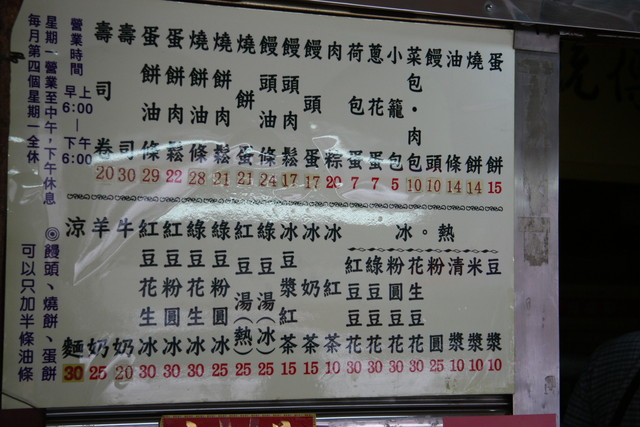 蛋餅 15
燒餅 14
油條 14
饅頭 10
菜包·肉包 10
小籠包 5
蔥花蛋 7
荷包蛋 7
肉粽 20
饅頭蛋 17
饅頭肉鬆 17
饅頭油條 24
燒餅蛋 21
燒餅肉鬆 21
燒餅油條 28
蛋餅肉鬆 22
蛋餅油條 29
壽司 30
壽司卷 20
冰。熱
豆漿 10
米漿 10
清漿 10
粉圓 25
花生豆花 30
粉圓豆花 30
綠豆豆花 30
紅豆豆花 30
冰紅茶 10
冰奶茶 15
冰豆漿紅茶 15
綠豆湯(冰) 25
紅豆湯(熱) 25
綠豆粉圓冰 25
綠豆花生冰 30
紅豆粉圓冰 30
紅豆花生冰 30
牛奶 20
羊奶 25
涼麵 30
營業時間 早上6:00｜下午6:00
星期一營業至中午，下午休息
每月第四個星期一全休
◎饅頭、燒餅、蛋餅
可以只加半條油條